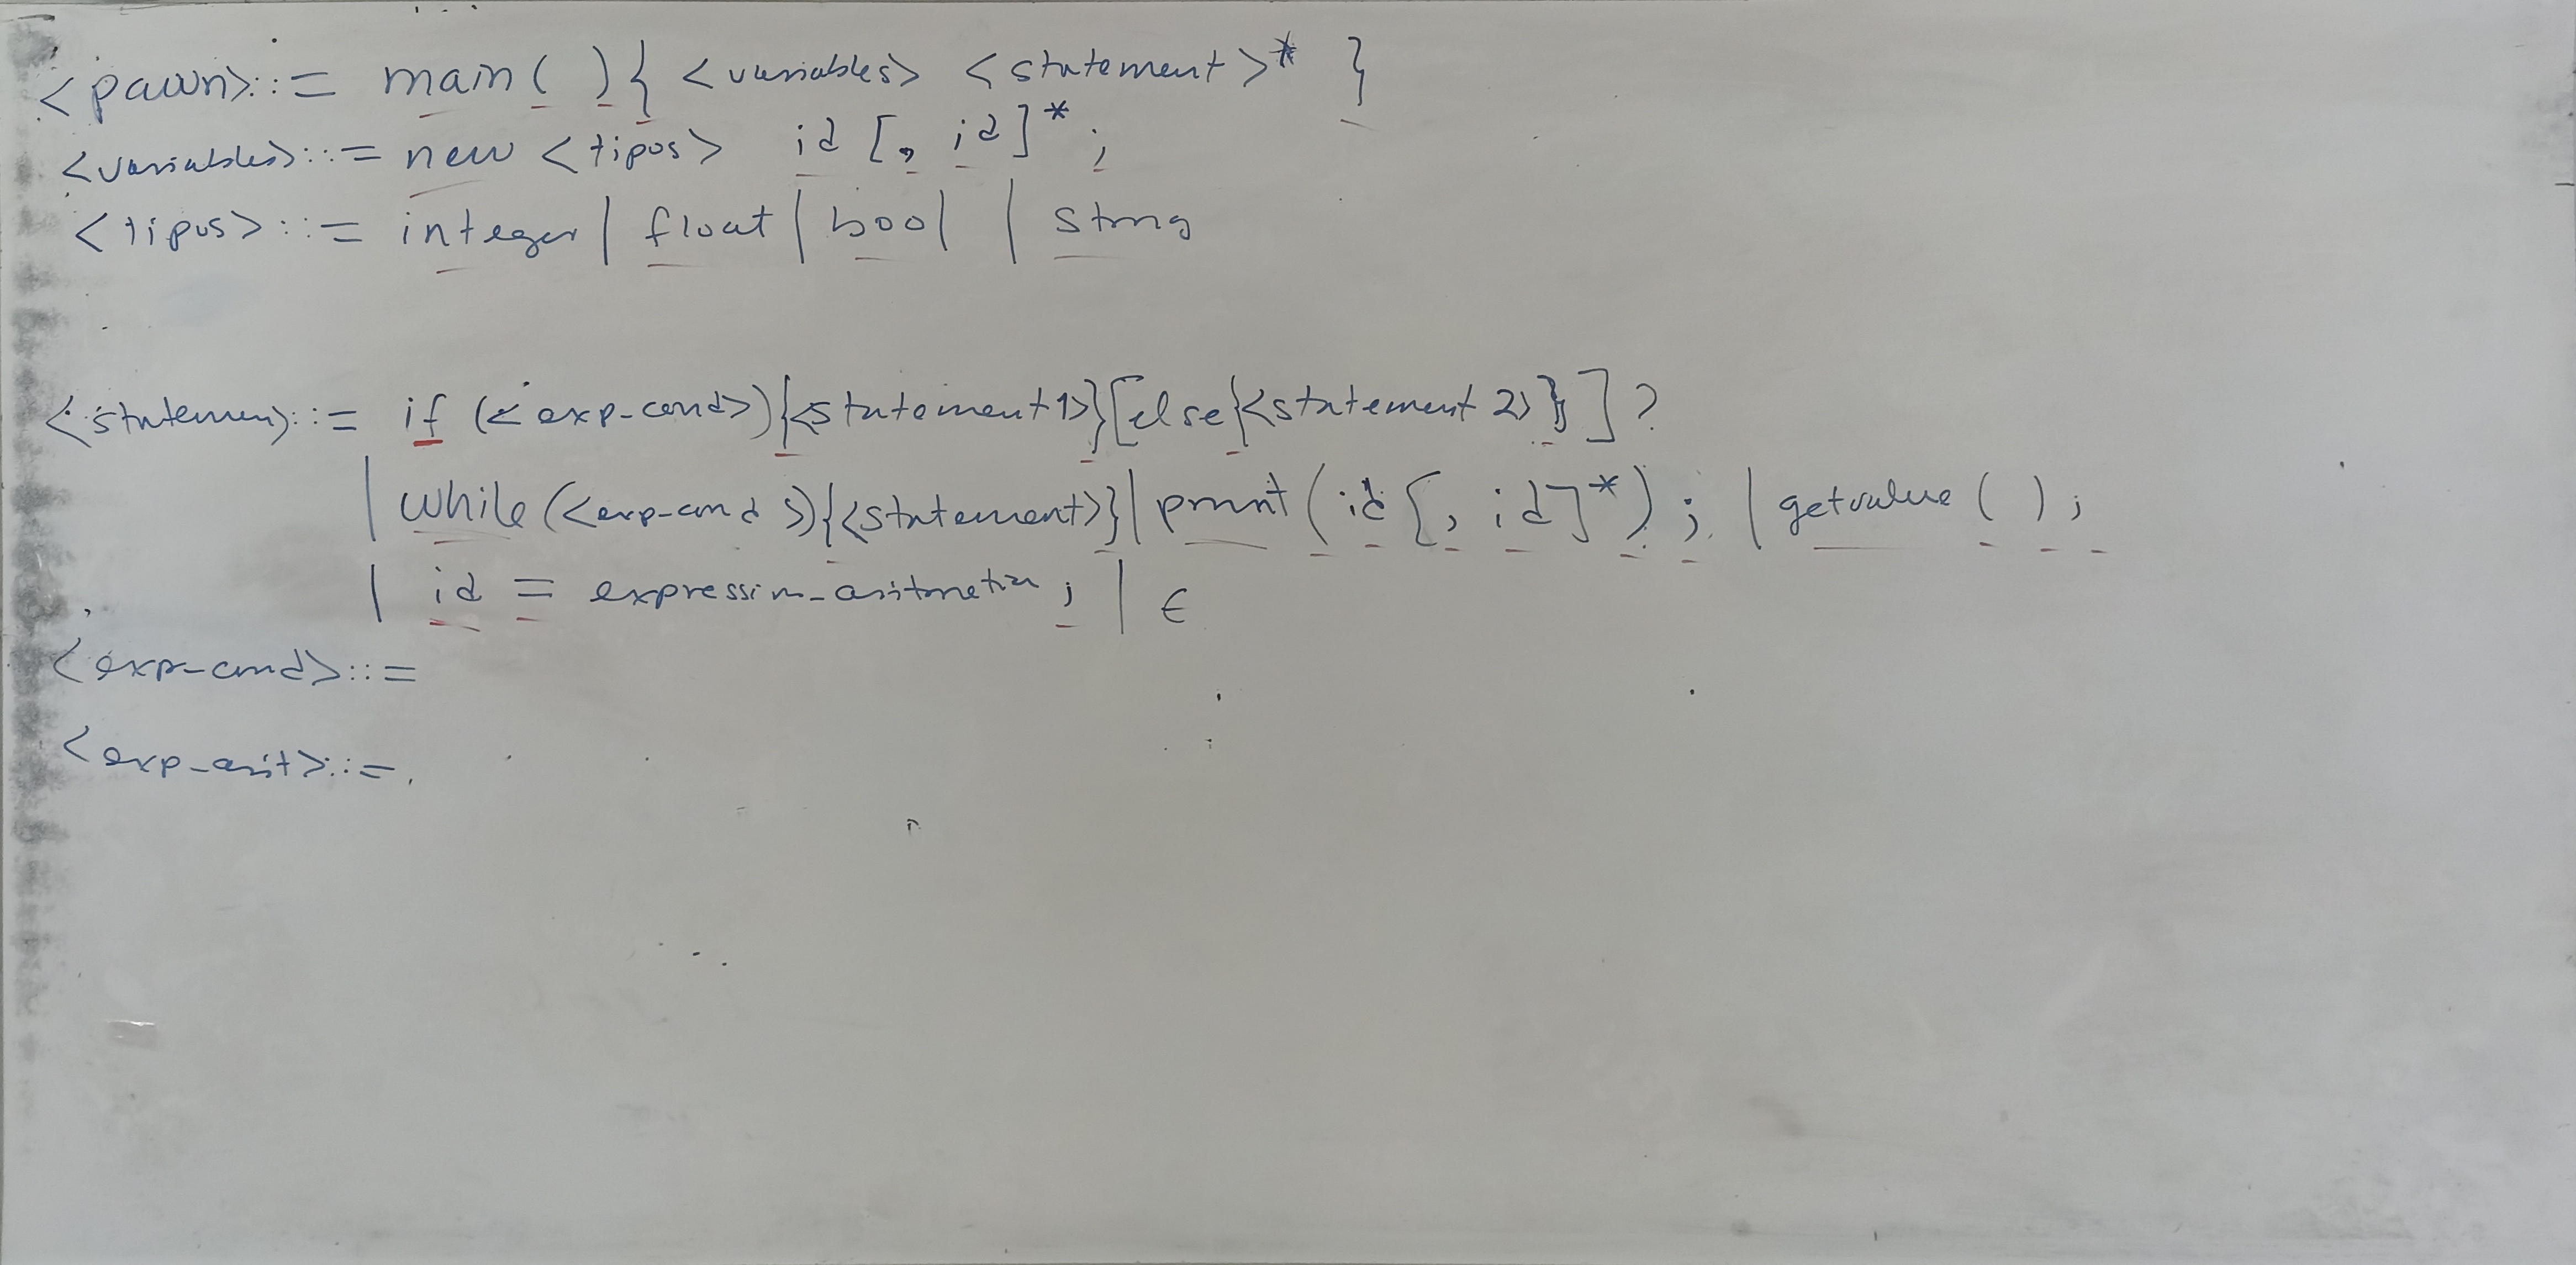 <pawn>::= main( ){ <variables> <statement>* }
<variables>::= new <tipos> id [, id]* ;
<tipos>::= integer | float | bool | string
<statement>::= if (<exp-cond>){<statement1>}[else{<statement 2>}]?
| while(<exp-cond>){<statement>}| print(id[, id]*) ; | getvalue ( ) ;
| id = expression-aritmetica ; | ϵ
<exp-cond>::=
<exp-arit>::=